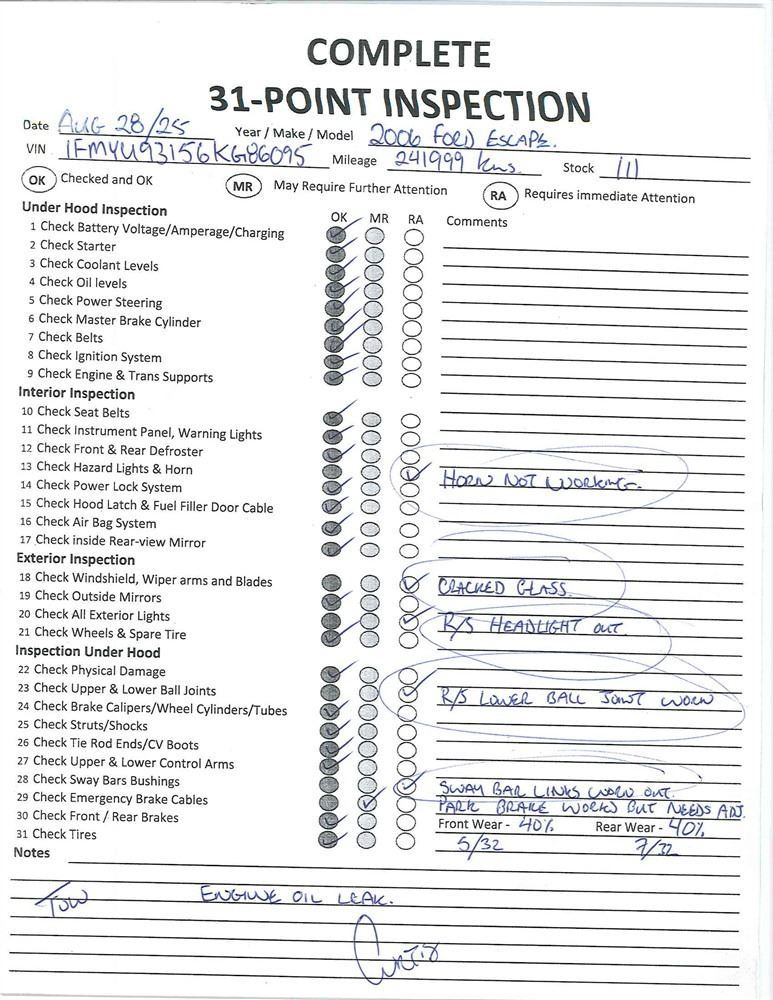 COMPLETE
31-POINT INSPECTION
Date AUG 28/25 Year / Make / Model 2006 FORD ESCAPE.
VIN 1FMYU93156KG86095 Mileage 241999 kms. Stock 111
OK Checked and OK MR May Require Further Attention RA Requires immediate Attention
Under Hood Inspection OK MR RA Comments
1 Check Battery Voltage/Amperage/Charging
2 Check Starter
3 Check Coolant Levels
4 Check Oil levels
5 Check Power Steering
6 Check Master Brake Cylinder
7 Check Belts
8 Check Ignition System
9 Check Engine & Trans Supports
Interior Inspection
10 Check Seat Belts
11 Check Instrument Panel, Warning Lights
12 Check Front & Rear Defroster
13 Check Hazard Lights & Horn HORN NOT WORKING.
14 Check Power Lock System
15 Check Hood Latch & Fuel Filler Door Cable
16 Check Air Bag System
17 Check inside Rear-view Mirror
Exterior Inspection
18 Check Windshield, Wiper arms and Blades CRACKED GLASS.
19 Check Outside Mirrors
20 Check All Exterior Lights R/S HEADLIGHT OUT.
21 Check Wheels & Spare Tire
Inspection Under Hood
22 Check Physical Damage
23 Check Upper & Lower Ball Joints R/S LOWER BALL JOINT WORN
24 Check Brake Calipers/Wheel Cylinders/Tubes
25 Check Struts/Shocks
26 Check Tie Rod Ends/CV Boots
27 Check Upper & Lower Control Arms
28 Check Sway Bars Bushings SWAY BAR LINKS WORN OUT.
29 Check Emergency Brake Cables PARK BRAKE WORKS BUT NEEDS ADJ.
30 Check Front / Rear Brakes Front Wear - 40% Rear Wear - 40%
31 Check Tires 5/32 7/32
Notes
TOW ENGINE OIL LEAK.